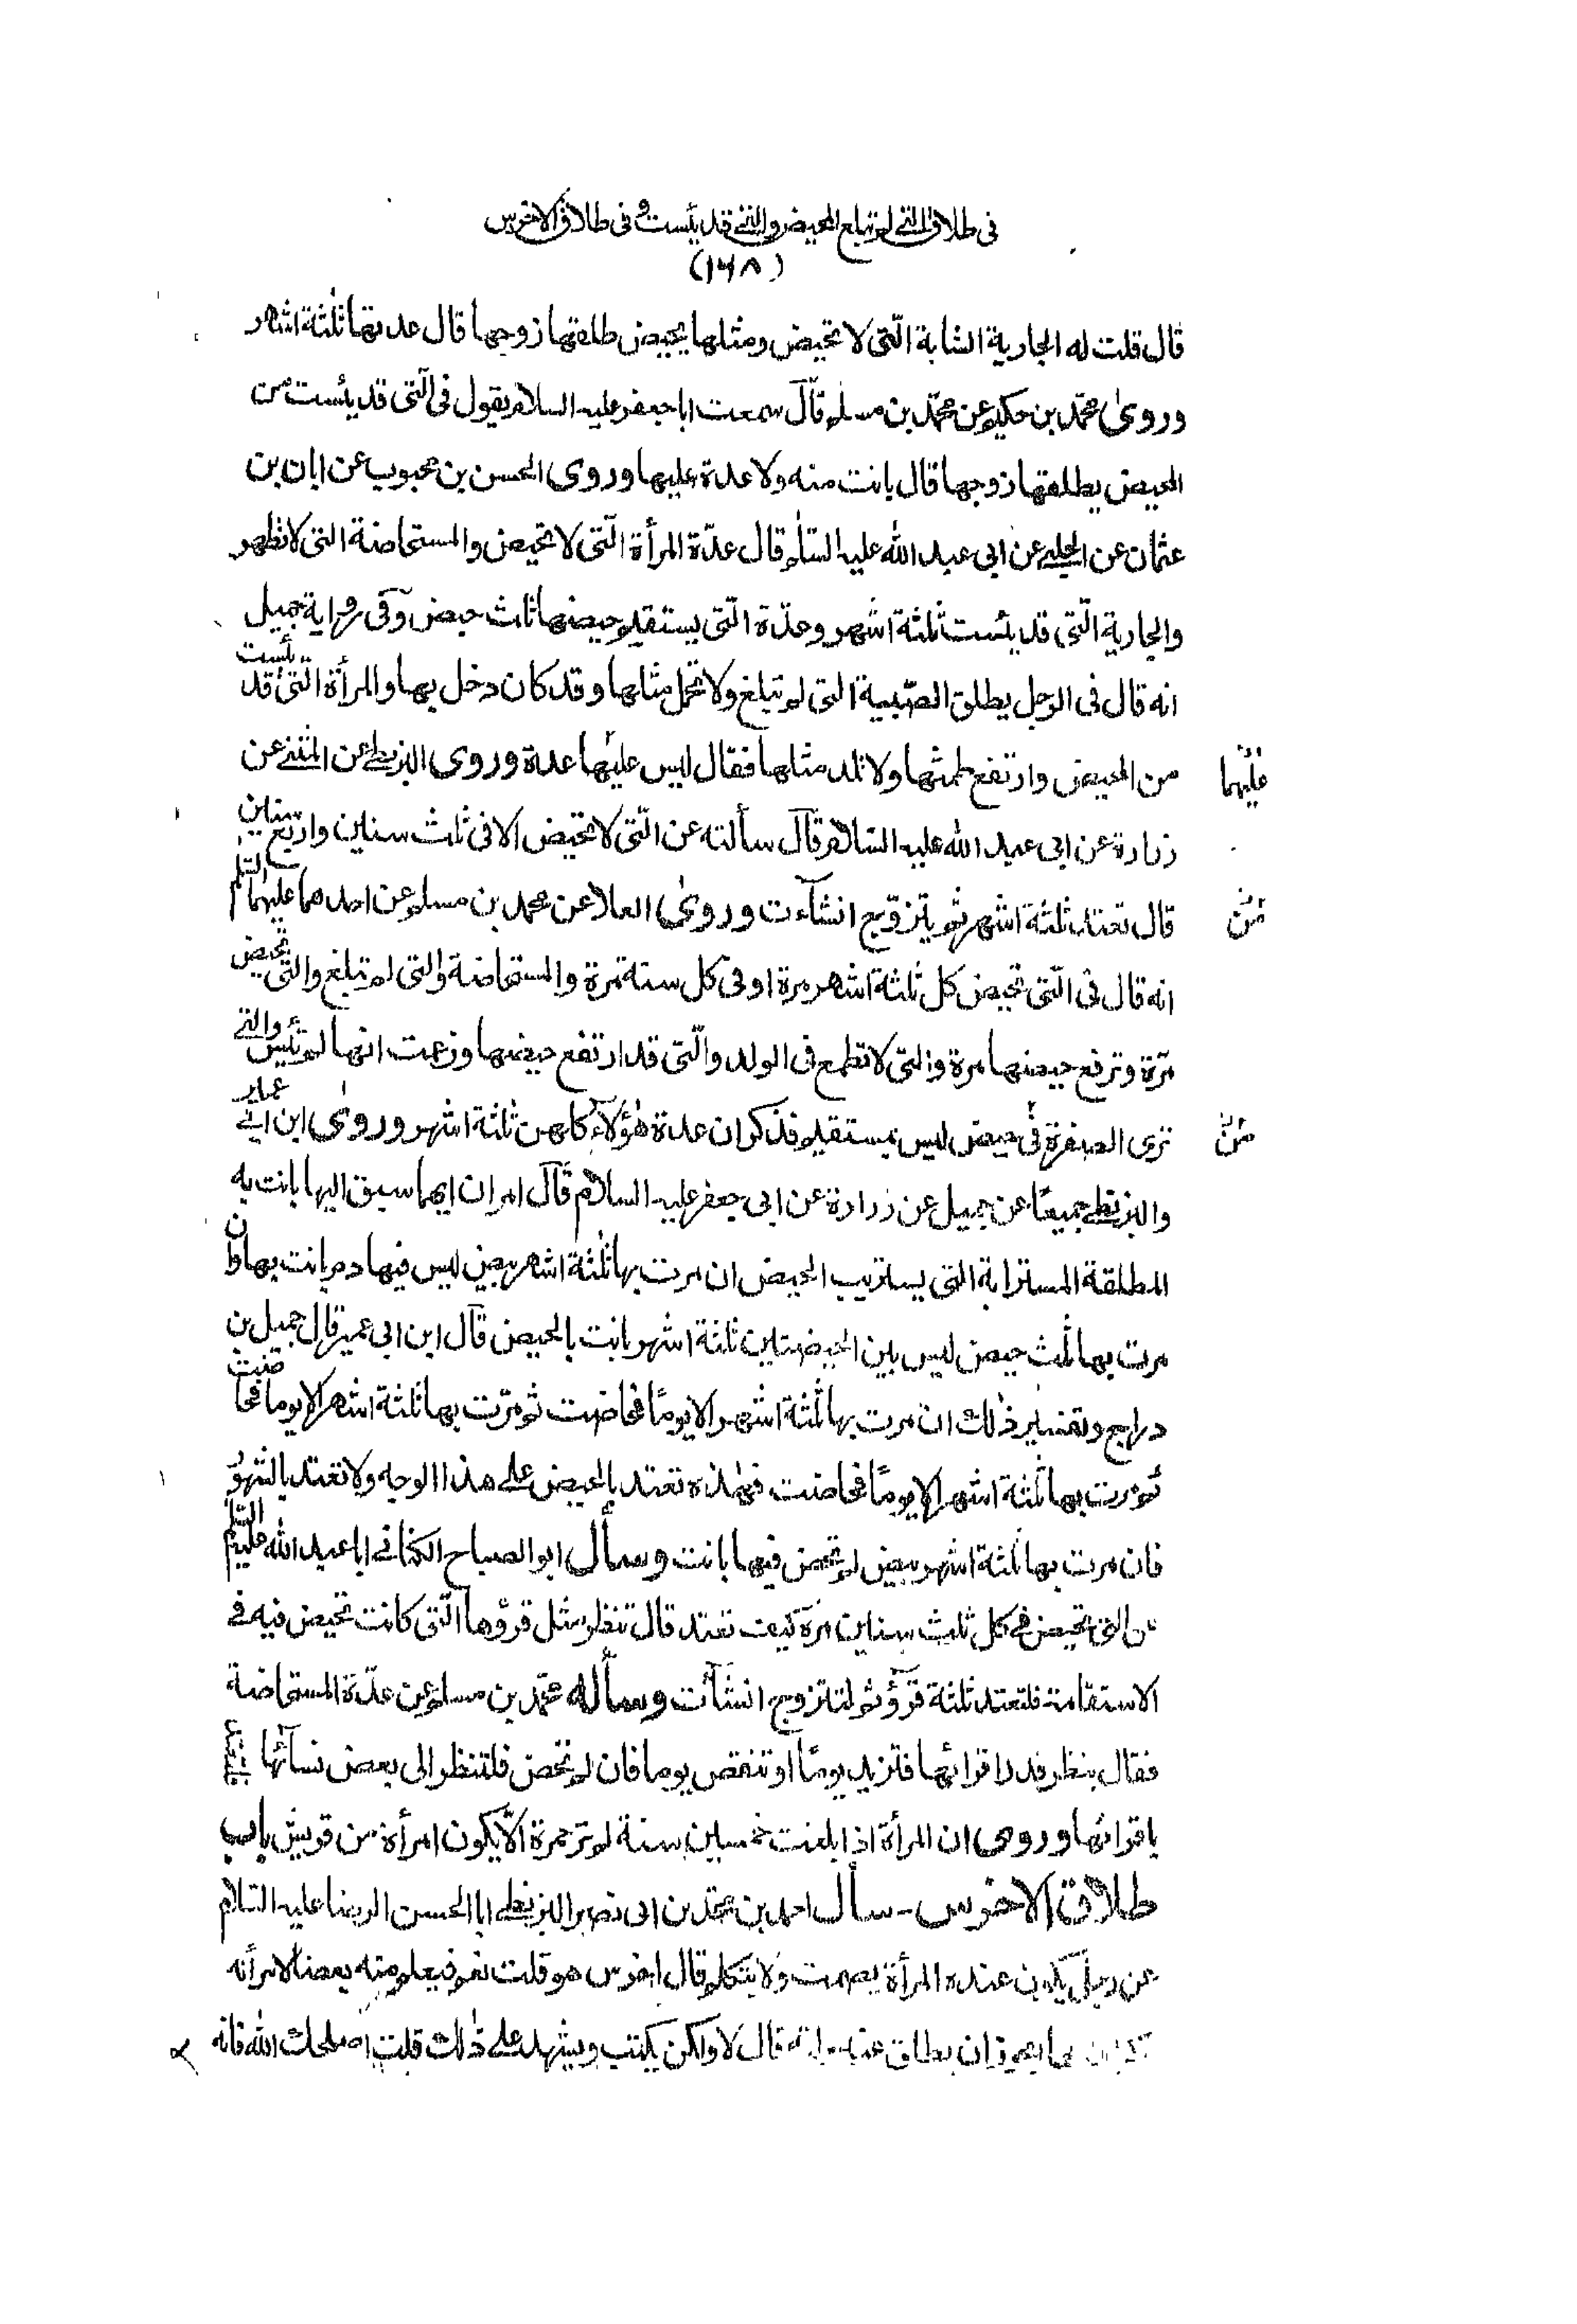 فى طلاق التى لم تبلغ المحيض والتى قد يئست و فى طلاق الاخرس
(١٦٨)
قال قلت له الجارية الشابة الّتى لا تحيض ومثلها يحيض طلقها زوجها قال عدتها ثلثة اشهر
وروىٰ محمّد بن حكيم عن محمّد بن مسلم قال سمعت ابا جعفر عليه السلام يقول فى الّتى قد يئست من
المحيض يطلقها زوجها قال بانت منه ولا عدة عليها وروى الحسن بن محبوب عن ابان بن
عثمان عن الحلبى عن ابى عبد الله عليه السّلام قال عدّة المرأة الّتى لا تحيض والمستحاضة التى لا تطهر
والجارية الّتى قد يئست ثلثة اشهر وعدّة الّتى يستقيم حيضها ثلث حيض وفى رواية جميل
انه قال فى الرجل يطلق الصّبية التى لم تبلغ ولا تحمل مثلها وقد كان دخل بها والمرأة الّتى قد يئست
من المحيض وارتفع طمثها ولا تلد مثلها فقال ليس عليها عدة وروى البزنطى عن المثنى عن
عليهما
زرارة عن ابى عبد الله عليه السّلام قال سألته عن الّتى لا تحيض الا فى ثلث سنين واربع سنين
قال تعتد ثلثة اشهر ثم يتزوّج انشاءت وروىٰ العلا عن محمد بن مسلم عن احدهما عليهما السّلم
انه قال فى الّتى تحيض كل ثلثة اشهر مرة او فى كل سنة مرة والمستحاضة والتى لم تبلغ والتى تحيض
مرّة وترفع حيضها مرة والتى لا تطمع فى الولد والّتى قد ارتفع حيضها وزعمت انها لم تئس والتى
ترى الصفرة فى حيض ليس بمستقيم فذكر ان عدة هٰؤلاء كلهن ثلثة اشهر وروىٰ ابن ابى عمير
والبزنطى جميعًا عن جميل عن زرارة عن ابى جعفر عليه السلام قال امران ايهما سبق اليها بانت به
المطلقة المسترابة التى يستريب الحيض ان مرت بها ثلثة اشهر بيض ليس فيها دم بانت بها وان
مرت بها ثلث حيض ليس بين الحيضتين ثلثة اشهر بانت بالحيض قال ابن ابى عمير قال جميل بن
دراج وتفسير ذٰلك ان مرت بها ثلثة اشهر الا يومًا فحاضت ثم مرّت بها ثلثة اشهر الا يوما فحاضت
ثم مرت بها ثلثة اشهر الا يومًا فحاضت فهٰذه تعتد بالحيض على هذا الوجه ولا تعتد بالشهور
فان مرت بها ثلثة اشهر بيض لم تحض فيها بانت وسأل ابو الصباح الكنانى ابا عبد الله عليه السّلم
عن التى تحيض فى كل ثلث سنين مرة كيف تعتد قال تنظر مثل قروها الّتى كانت تحيض فيه فى
الاستقامة فلتعتد ثلثة قروء ثم لتتزوج انشاءت وسأله محمّد بن مسلم عن عدّة المستحاضة
فقال ينظر قدر اقرائها فلتزيد يومًا او تنقص يوما فان لم تحض فلتنظر الى بعض نسائها
باقرائها وروى ان المرأة اذا بلغت خمسين سنة لم تر حمرة الّا يكون امرأة من قريش باب
طلاق الاخرس - سأل احمد بن محمّد بن ابى نصر البزنطى ابا الحسن الرضا عليه السّلام
عن رجل يكون عنده المرأة يصمت ولا يتكلم قال اخرس هو قلت نعم فيعلم منه بعضا لامرأته
ان يطلق عنه قال لا ولكن يكتب ويشهد على ذٰلك قلت اصلحك الله فانه